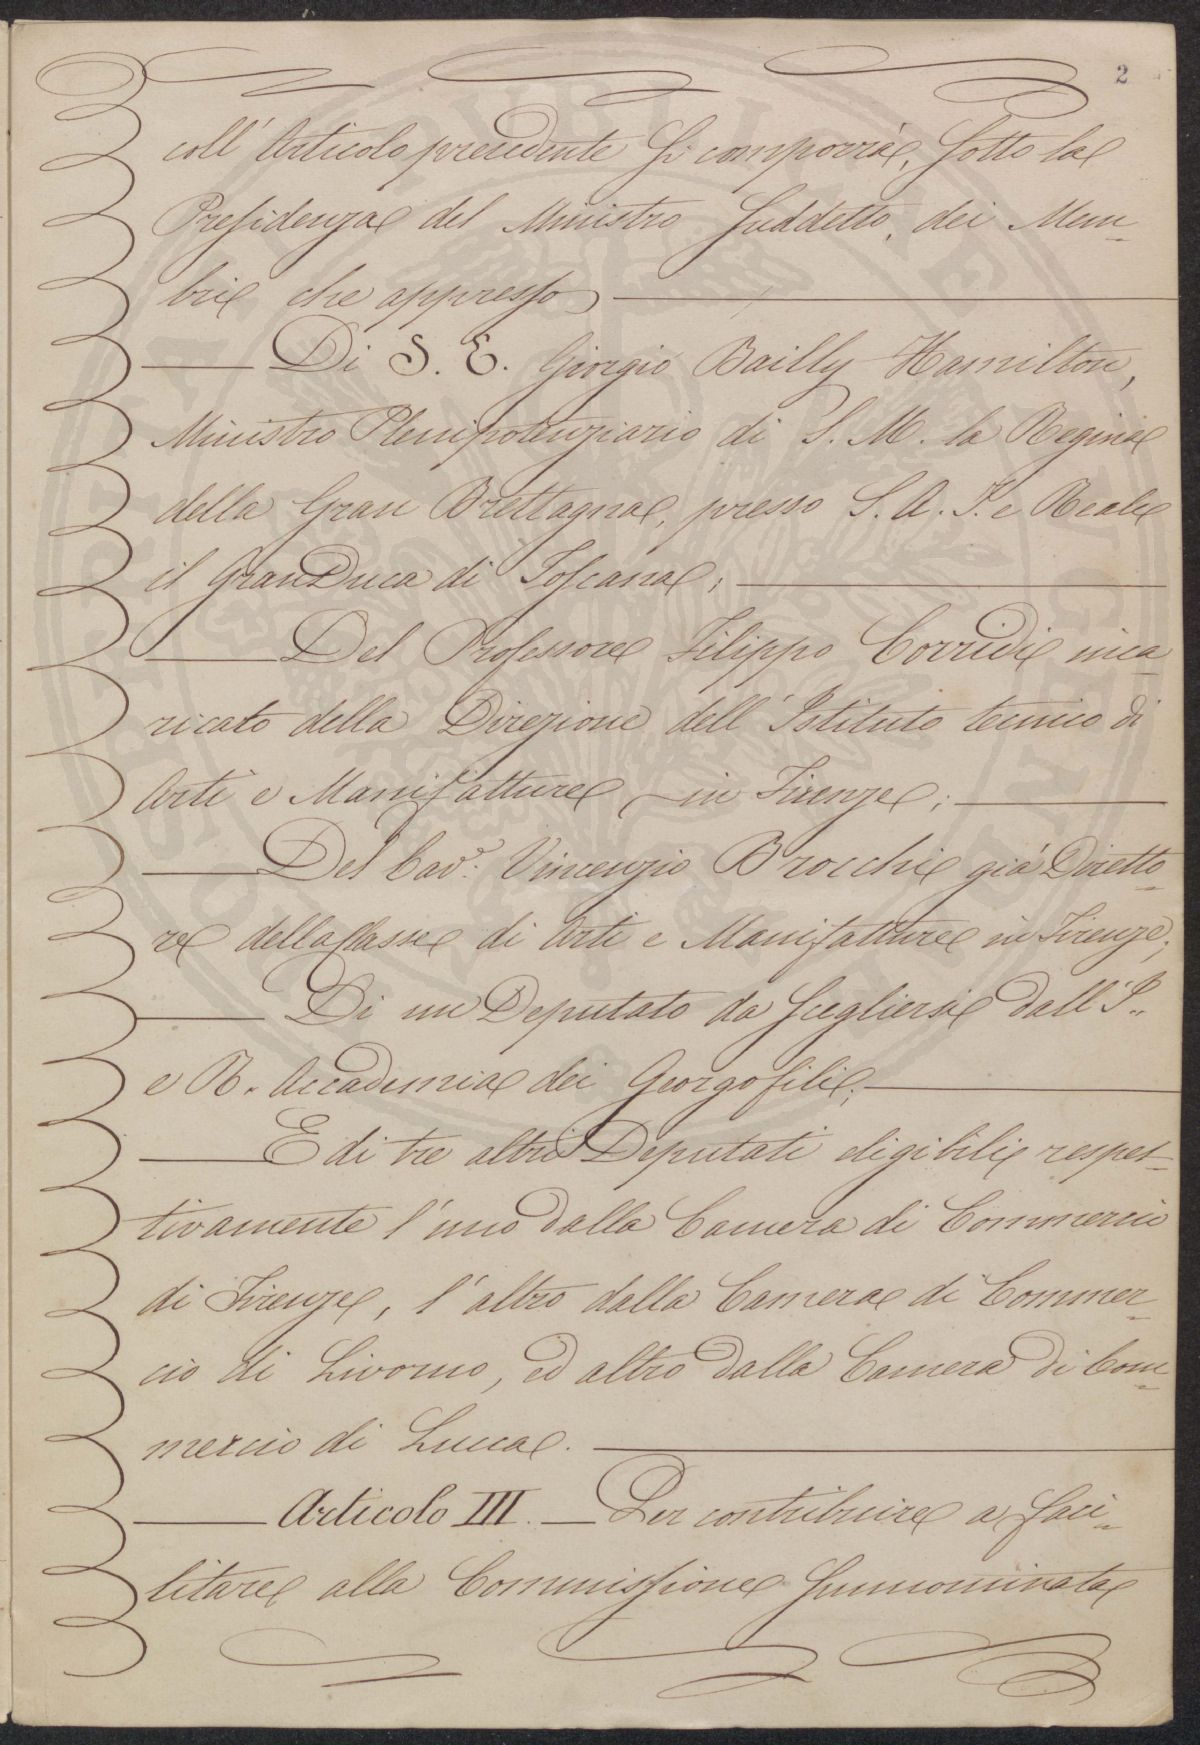 2
coll' Articolo precedente si comporrà, sotto la
Presidenza del Ministro suddetto, dei Mem-
bri che appresso
Di S. E. Giorgio Bailly Hamilton,
Ministro Plenipotenziario di S. M. la Regina
della Gran Brettagna, presso S. A. I. e Reale
il GranDuca di Toscana;
Del Professore Filippo Corridi inca-
ricato della Direzione dell' Istituto tecnico di
Arti e Manifatture in Firenze;
Del Cav.e Vincenzio Brocchi già Diretto-
re della Classe di Arti e Manifatture in Firenze;
Di un Deputato da scegliersi dall' I.
e R. Accademia dei Georgofili;
E di tre altri Deputati eligibili respet-
tivamente l'uno dalla Camera di Commercio
di Firenze, l'altro dalla Camera di Commer-
cio di Livorno, ed altro dalla Camera di Com-
mercio di Lucca.
Articolo III. Per contribuire a faci-
litare alla Commissione sunnominata